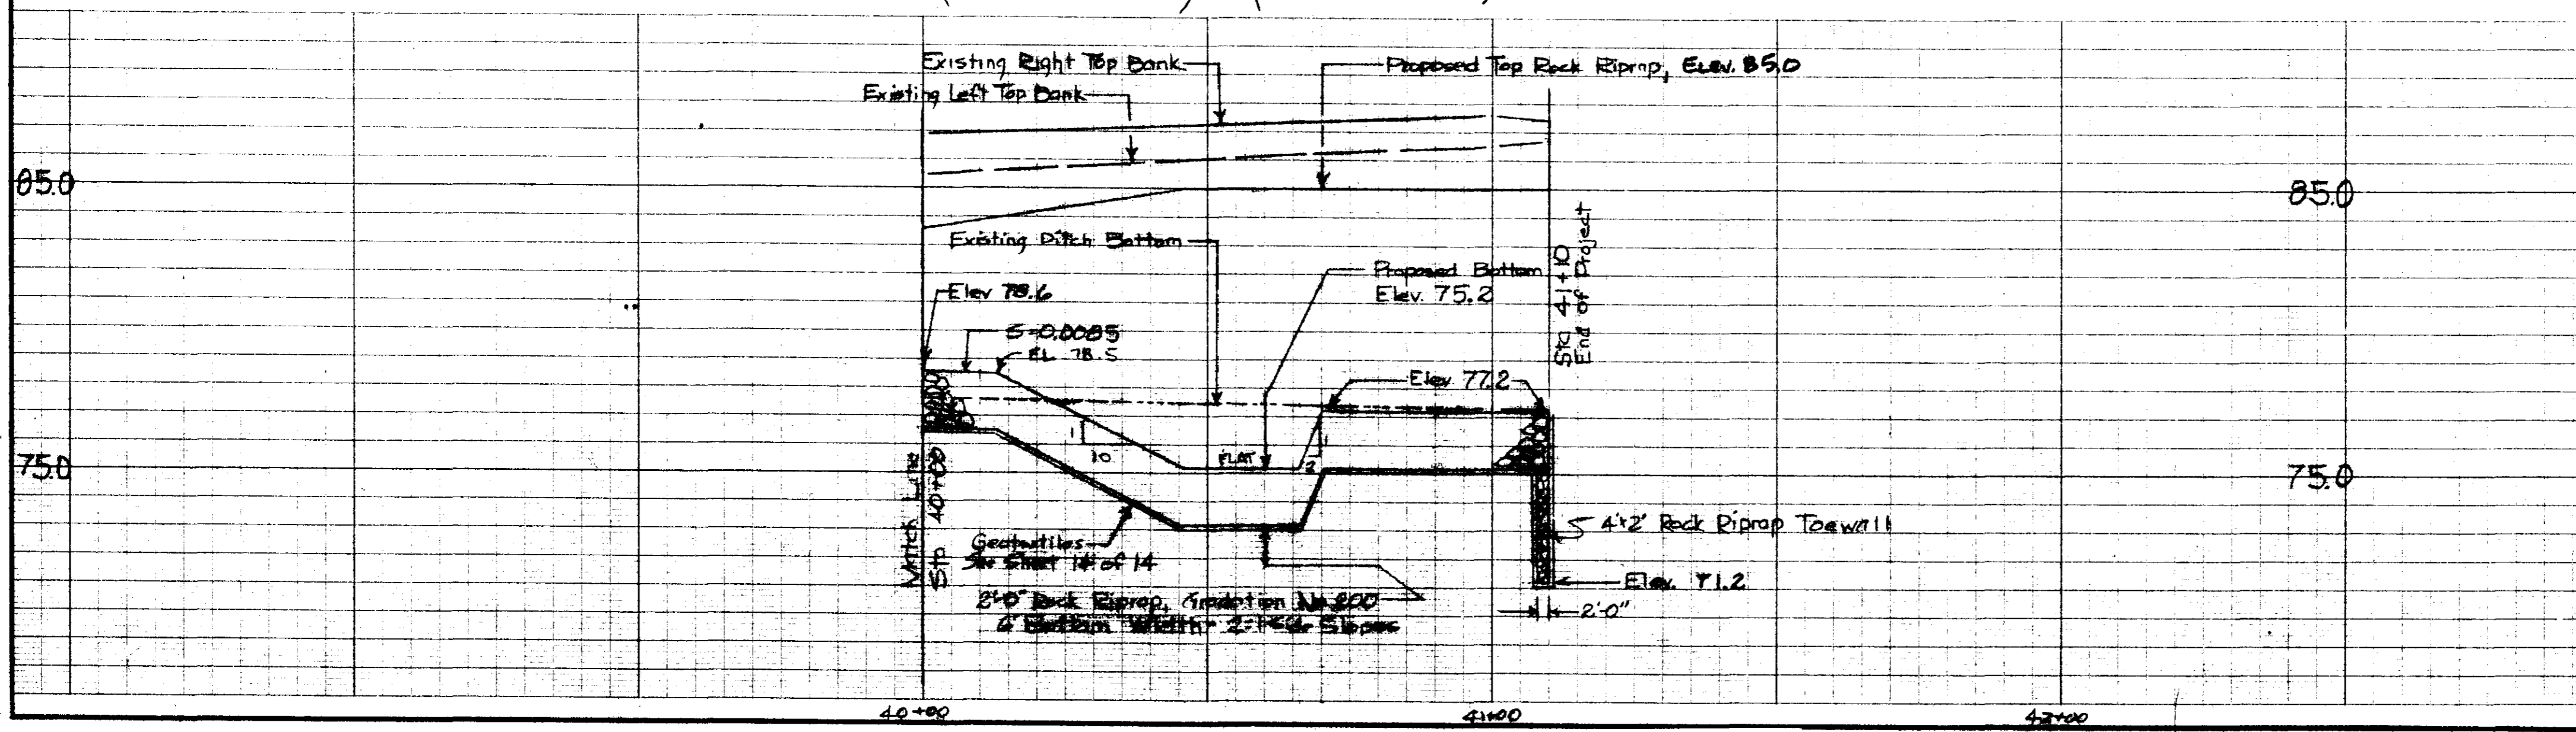 Existing Right Top Bank
Proposed Top Rock Riprap, Elev. 85.0
Existing Left Top Bank
85.0
85.0
Existing Ditch Bottom
Sta 41+10
End of Project
Proposed Bottom
Elev. 75.2
Elev 78.6
S=0.0085
EL 78.5
Elev 77.2
1
10
FLAT
2
1
75.0
75.0
Match Line
Sta 40+00
4'x2' Rock Riprap Toewall
Geotextiles
See Sheet of 14
Elev. 71.2
2'-0" Rock Riprap, Gradation No 200
6' Bottom Width 2:1 Side Slopes
2'-0"
40+00
41+00
42+00